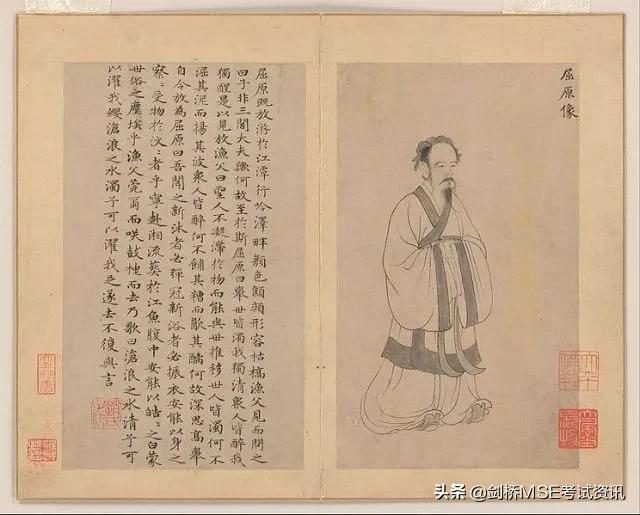 屈原像
屈原既放游於江潭行吟澤畔顏色顦顇形容枯槁漁父見而問之
曰子非三閭大夫歟何故至於斯屈原曰舉世皆濁我獨清衆人皆醉我
獨醒是以見放漁父曰聖人不凝滯於物而能與世推移世人皆濁何不
淈其泥而揚其波衆人皆醉何不餔其糟而歠其醨何故深思高舉
自令放為屈原曰吾聞之新沐者必彈冠新浴者必振衣安能以身之
察〻受物於汶〻者乎寧赴湘流葬於江魚腹中安能以皓〻之白蒙
世俗之塵埃乎漁父莞爾而咲鼓枻而去乃歌曰滄浪之水清兮可
以濯我纓滄浪之水濁兮可以濯我足遂去不復與言
头条 @剑桥MSE考试资讯